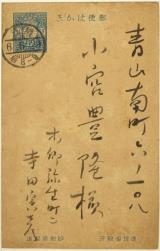 郵便はがき
青山南町六ノ一〇八
小宮豊隆様
本郷弥生町二
寺田寅彦